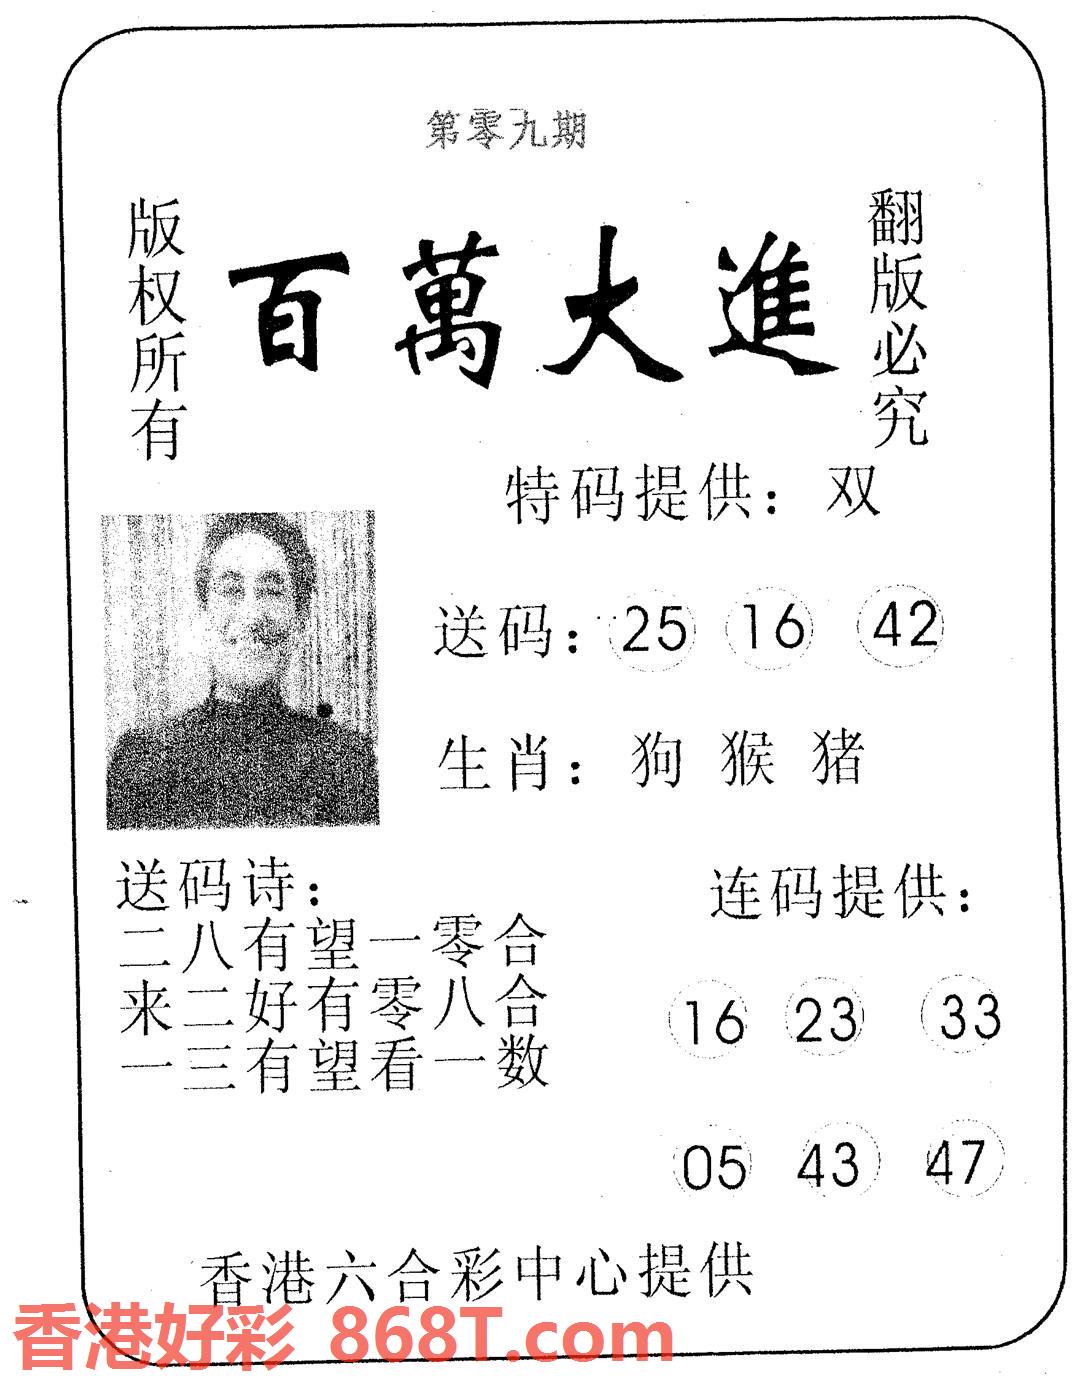 第零九期
版权所有
百萬大進
翻版必究
特码提供：双
送码：25 16 42
生肖：狗 猴 猪
送码诗：
二八有望一零合
来二好有零八合
一三有望看一数
连码提供：
16 23 33
05 43 47
香港六合彩中心提供
香港好彩 868T.com